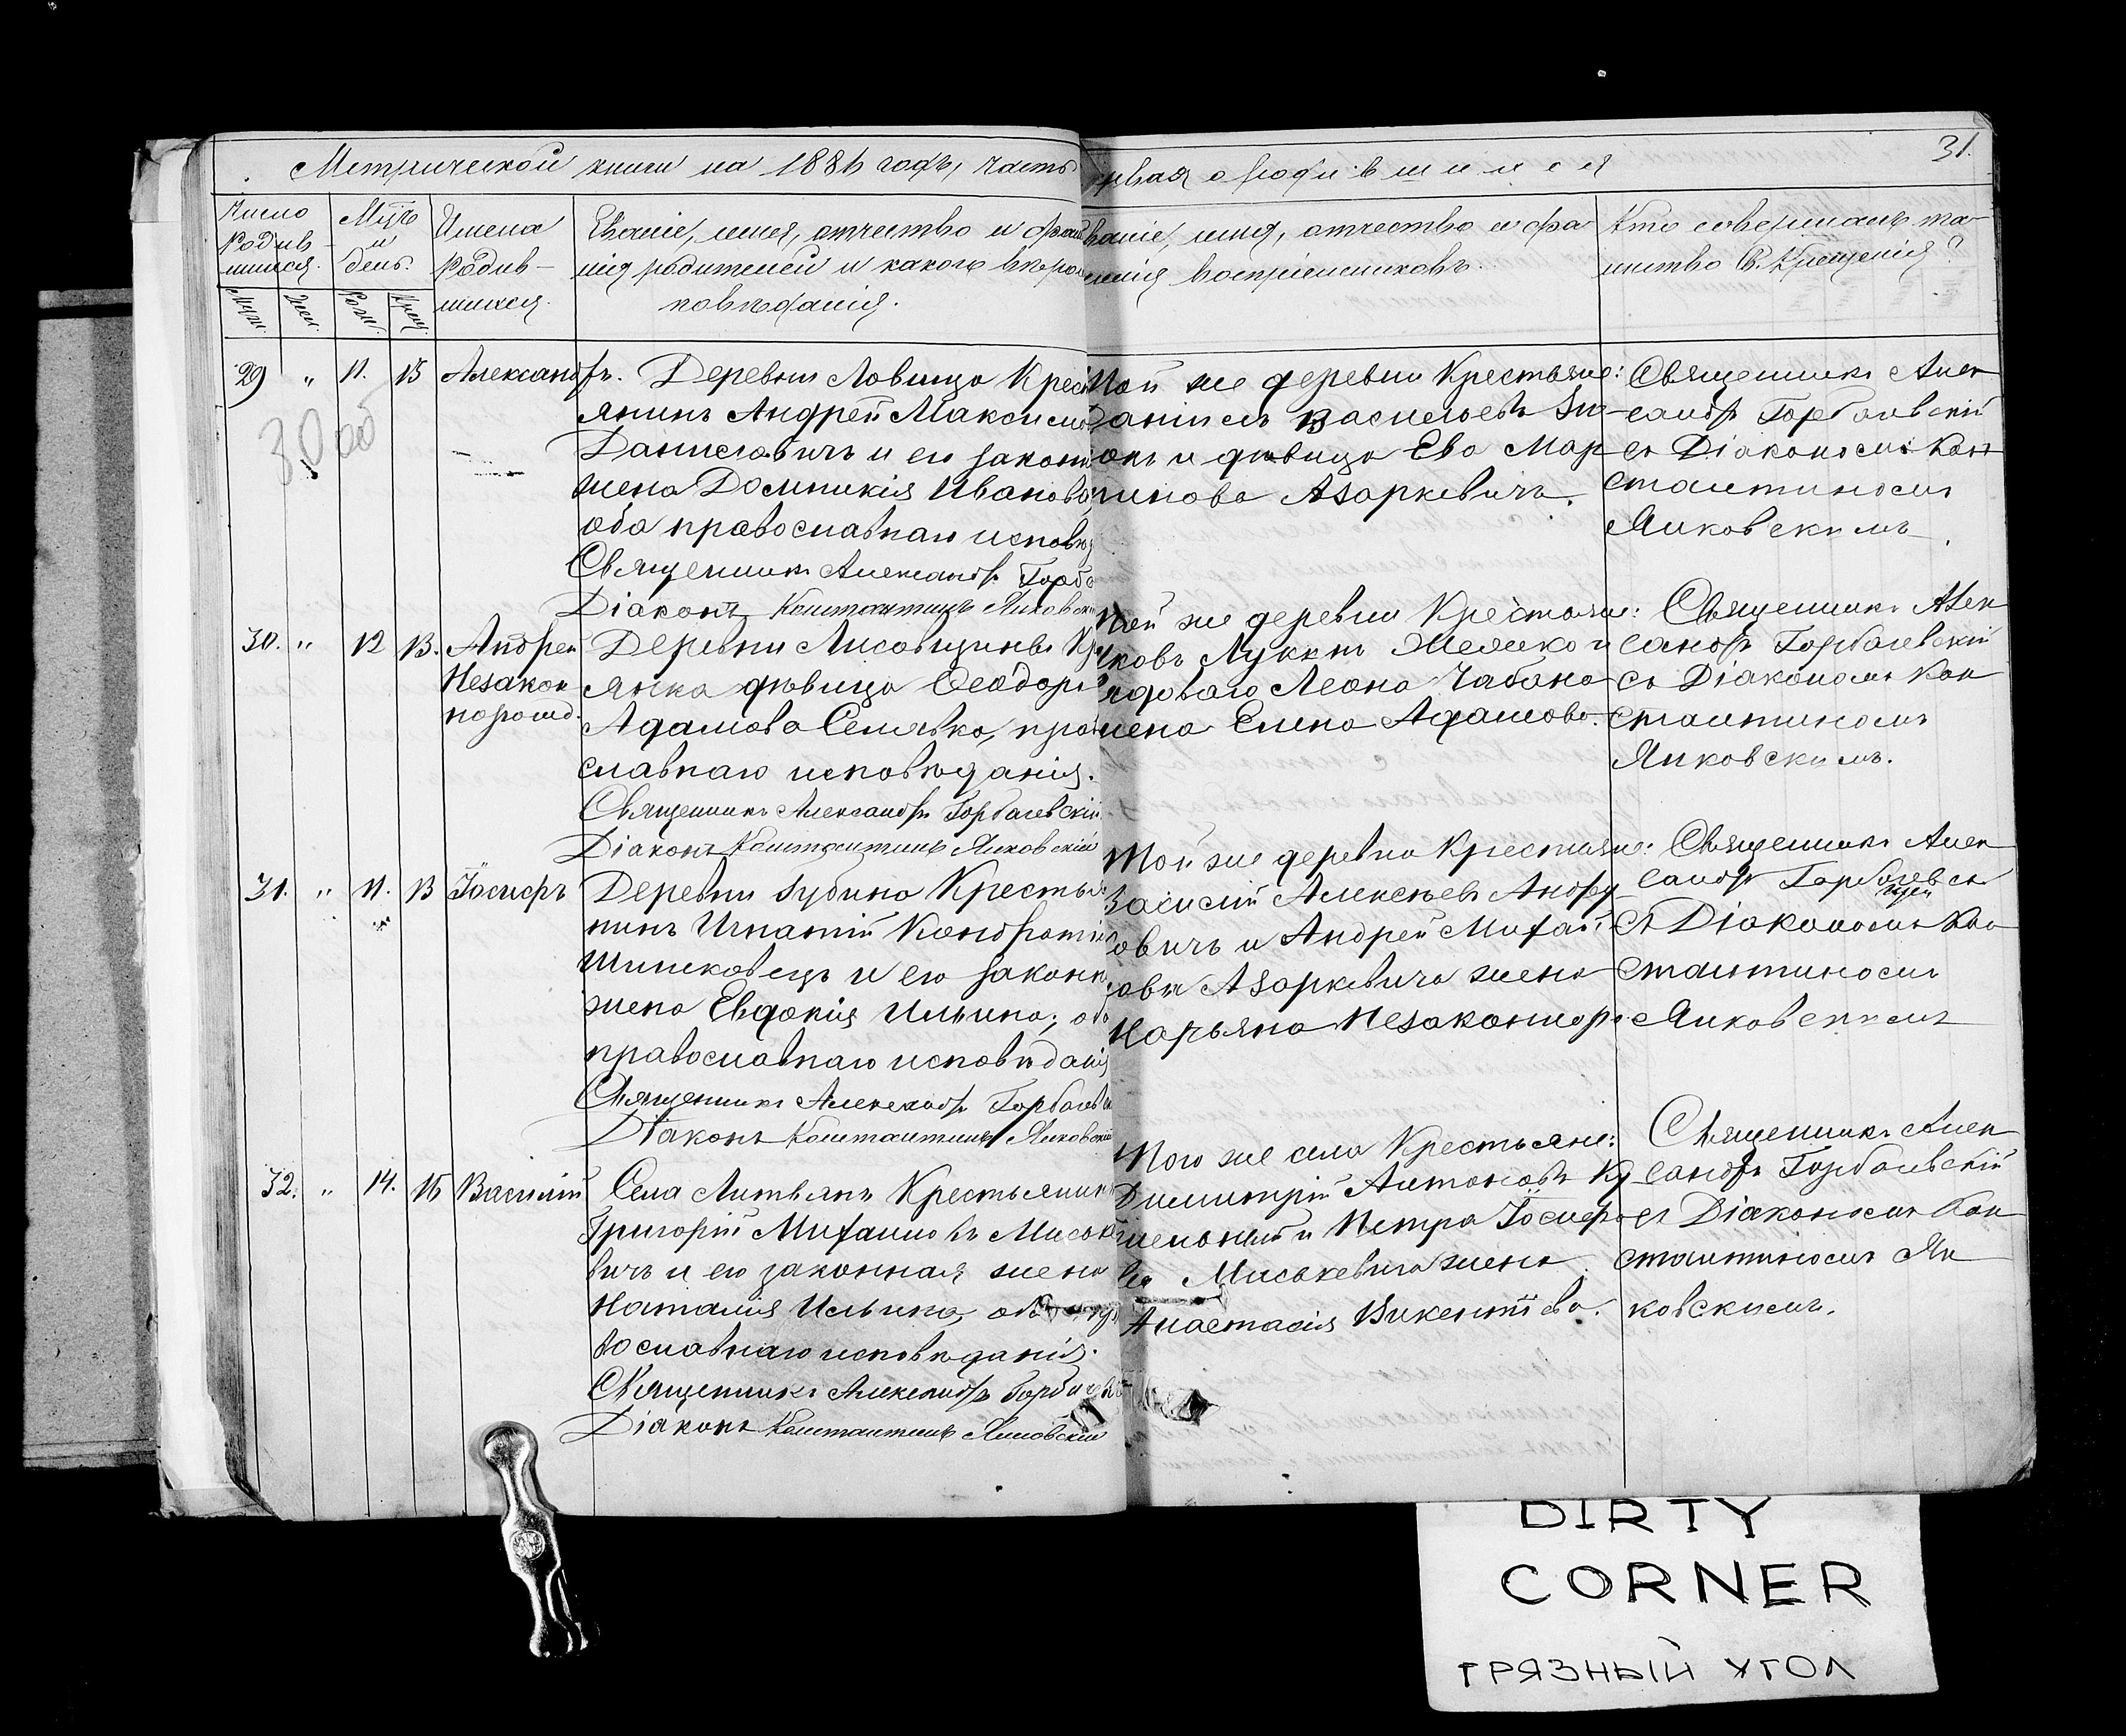 Метрической книги на 1886 годъ, часть
рвая о родившихся
31.
Число
родив-
шихся.
Муж.
Жен.
Мѣс.
и
день.
Рожд.
Крещ.
Имена
родив-
шихся.
Званіе, имя, отчество и фами
лія родителей и какого вѣрои
повѣданія.
Званіе, имя, отчество и фа
милія воспріемниковъ.
Кто совершалъ та-
инство Св. Крещенія?
29 „ 11. 13 Александръ.
3000
Деревни Ловища Крес
янинъ Андрей Максимо
Даниловичъ и его закон
жена Домникія Иванова,
оба православнаго исповѣд
Священникъ Александръ Горба
Діаконъ Константинъ Янковски
Той же деревни Крестьяне:
Даніилъ Васильевъ
и дѣвица Ева Мар
тинова Азаркевичъ.
Священникъ Алек
сандръ Горбачевскій
съ Діакономъ Кон
стантиномъ
Янковскимъ.
30. „ 12 13. Андрей
Незакон
норожд.
Деревни Лисовщины Кр
янка дѣвица Ѳеодор
Адамова Семявко, прав
славнаго исповѣданія.
Священникъ Александръ Горбачевскій
Діаконъ Константинъ Янковскій
Той же деревни Крестьяне:
ковъ Луккинъ Желяско и
рядоваго Леона Чабана
жена Елена Адамова.
Священникъ Алек
сандръ Горбачевскій
съ Діакономъ Кон
стантиномъ
Янковскимъ.
31. „ 11. 13 Іосифъ
Деревни Зубина Крестья
нинъ Игнатій Кондрати
Шишковецъ и его законн
жена Евдокія Ильина, оба
православнаго исповѣданія
Священникъ Александръ Горбачев
Діаконъ Константинъ Янковскій
Той же деревни Крестьяне:
Василій Алексѣевъ Андру
овичъ и Андрея Михаи
ова Азаркевича жена
Марьяна Незаконнор.
Священникъ Алек
сандръ Горбачевск
съ Діакономъ Кон
стантиномъ
Янковскимъ
32. „ 14. 15 Василій
Села Литвянъ Крестьянинъ
Григорій Михаиловъ Миськ
вичъ и его законная жена
Наталія Ильина, оба пра
вославнаго исповѣданія.
Священникъ Александръ Горбачевскій
Діаконъ Константинъ Янковскій
Того же села Крестьяне:
Димитрій Антоновъ Ку
и Петра Іосифо
ва Миськевича жена
Анастасія Викентіева.
Священникъ Алек
сандръ Горбачевскій
съ Діакономъ Кон
стантиномъ Ян
ковскимъ.
DIRTY
CORNER
ГРЯЗНЫЙ УГОЛ